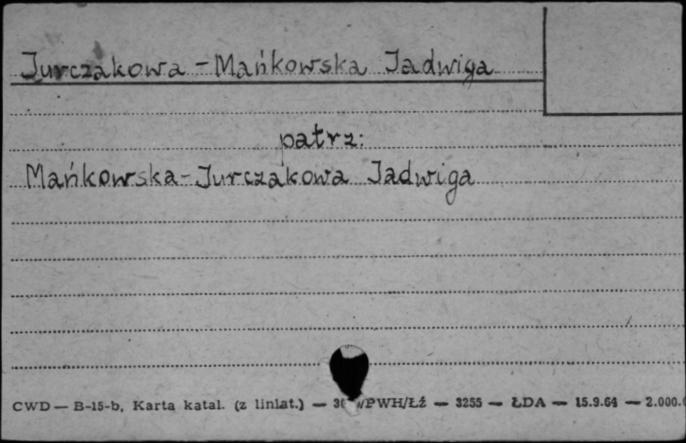 Jurczakowa - Mańkowska Jadwiga
patrz:
Mańkowska-Jurczakowa Jadwiga
CWD — B-15-b, Karta katal. (z liniat.) — PWH/Łź — 3255 — ŁDA — 15.9.64 —